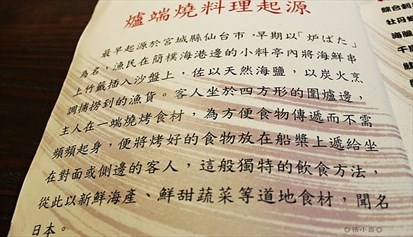 爐端燒料理起源
最早起源於宮城縣仙台市,早期以「炉ばた」
為名,漁民在簡樸海港邊的小料亭內將海鮮串
上竹籤插入沙盤上,佐以天然海鹽,以炭火烹
調捕撈到的漁貨。客人坐於四方形的圍爐邊,
主人在一端燒烤食材,為方便食物傳遞而不需
頻頻起身,便將烤好的食物放在船槳上遞給坐
在對面或側邊的客人,這般獨特的飲食方法,
從此以新鮮海產、鮮甜蔬菜等道地食材,聞名
日本。
牡丹